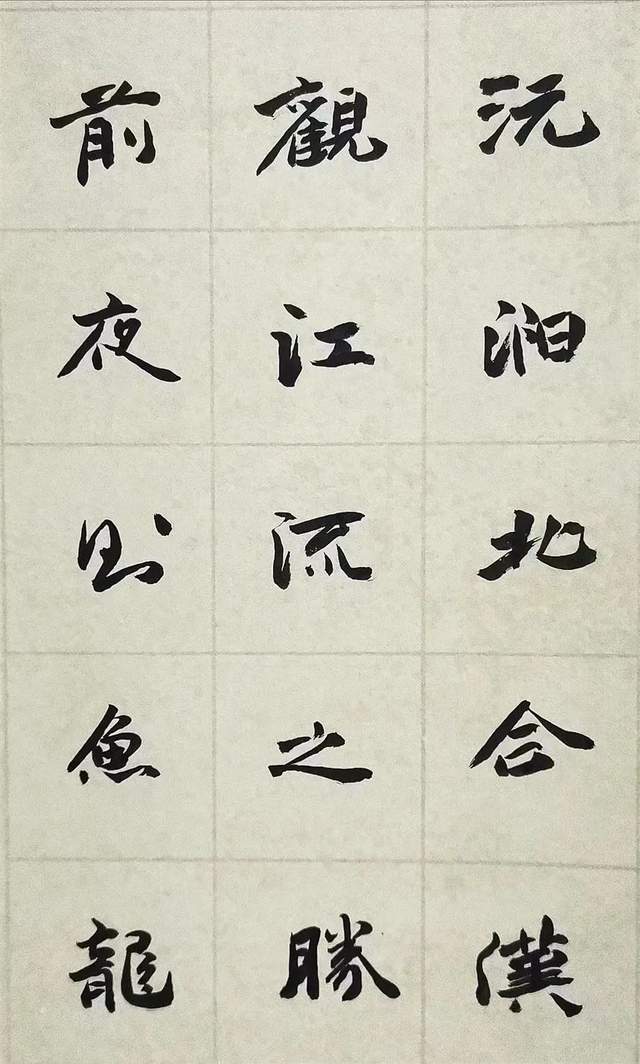 沅湘北合漢
觀江流之勝
前夜則魚龍